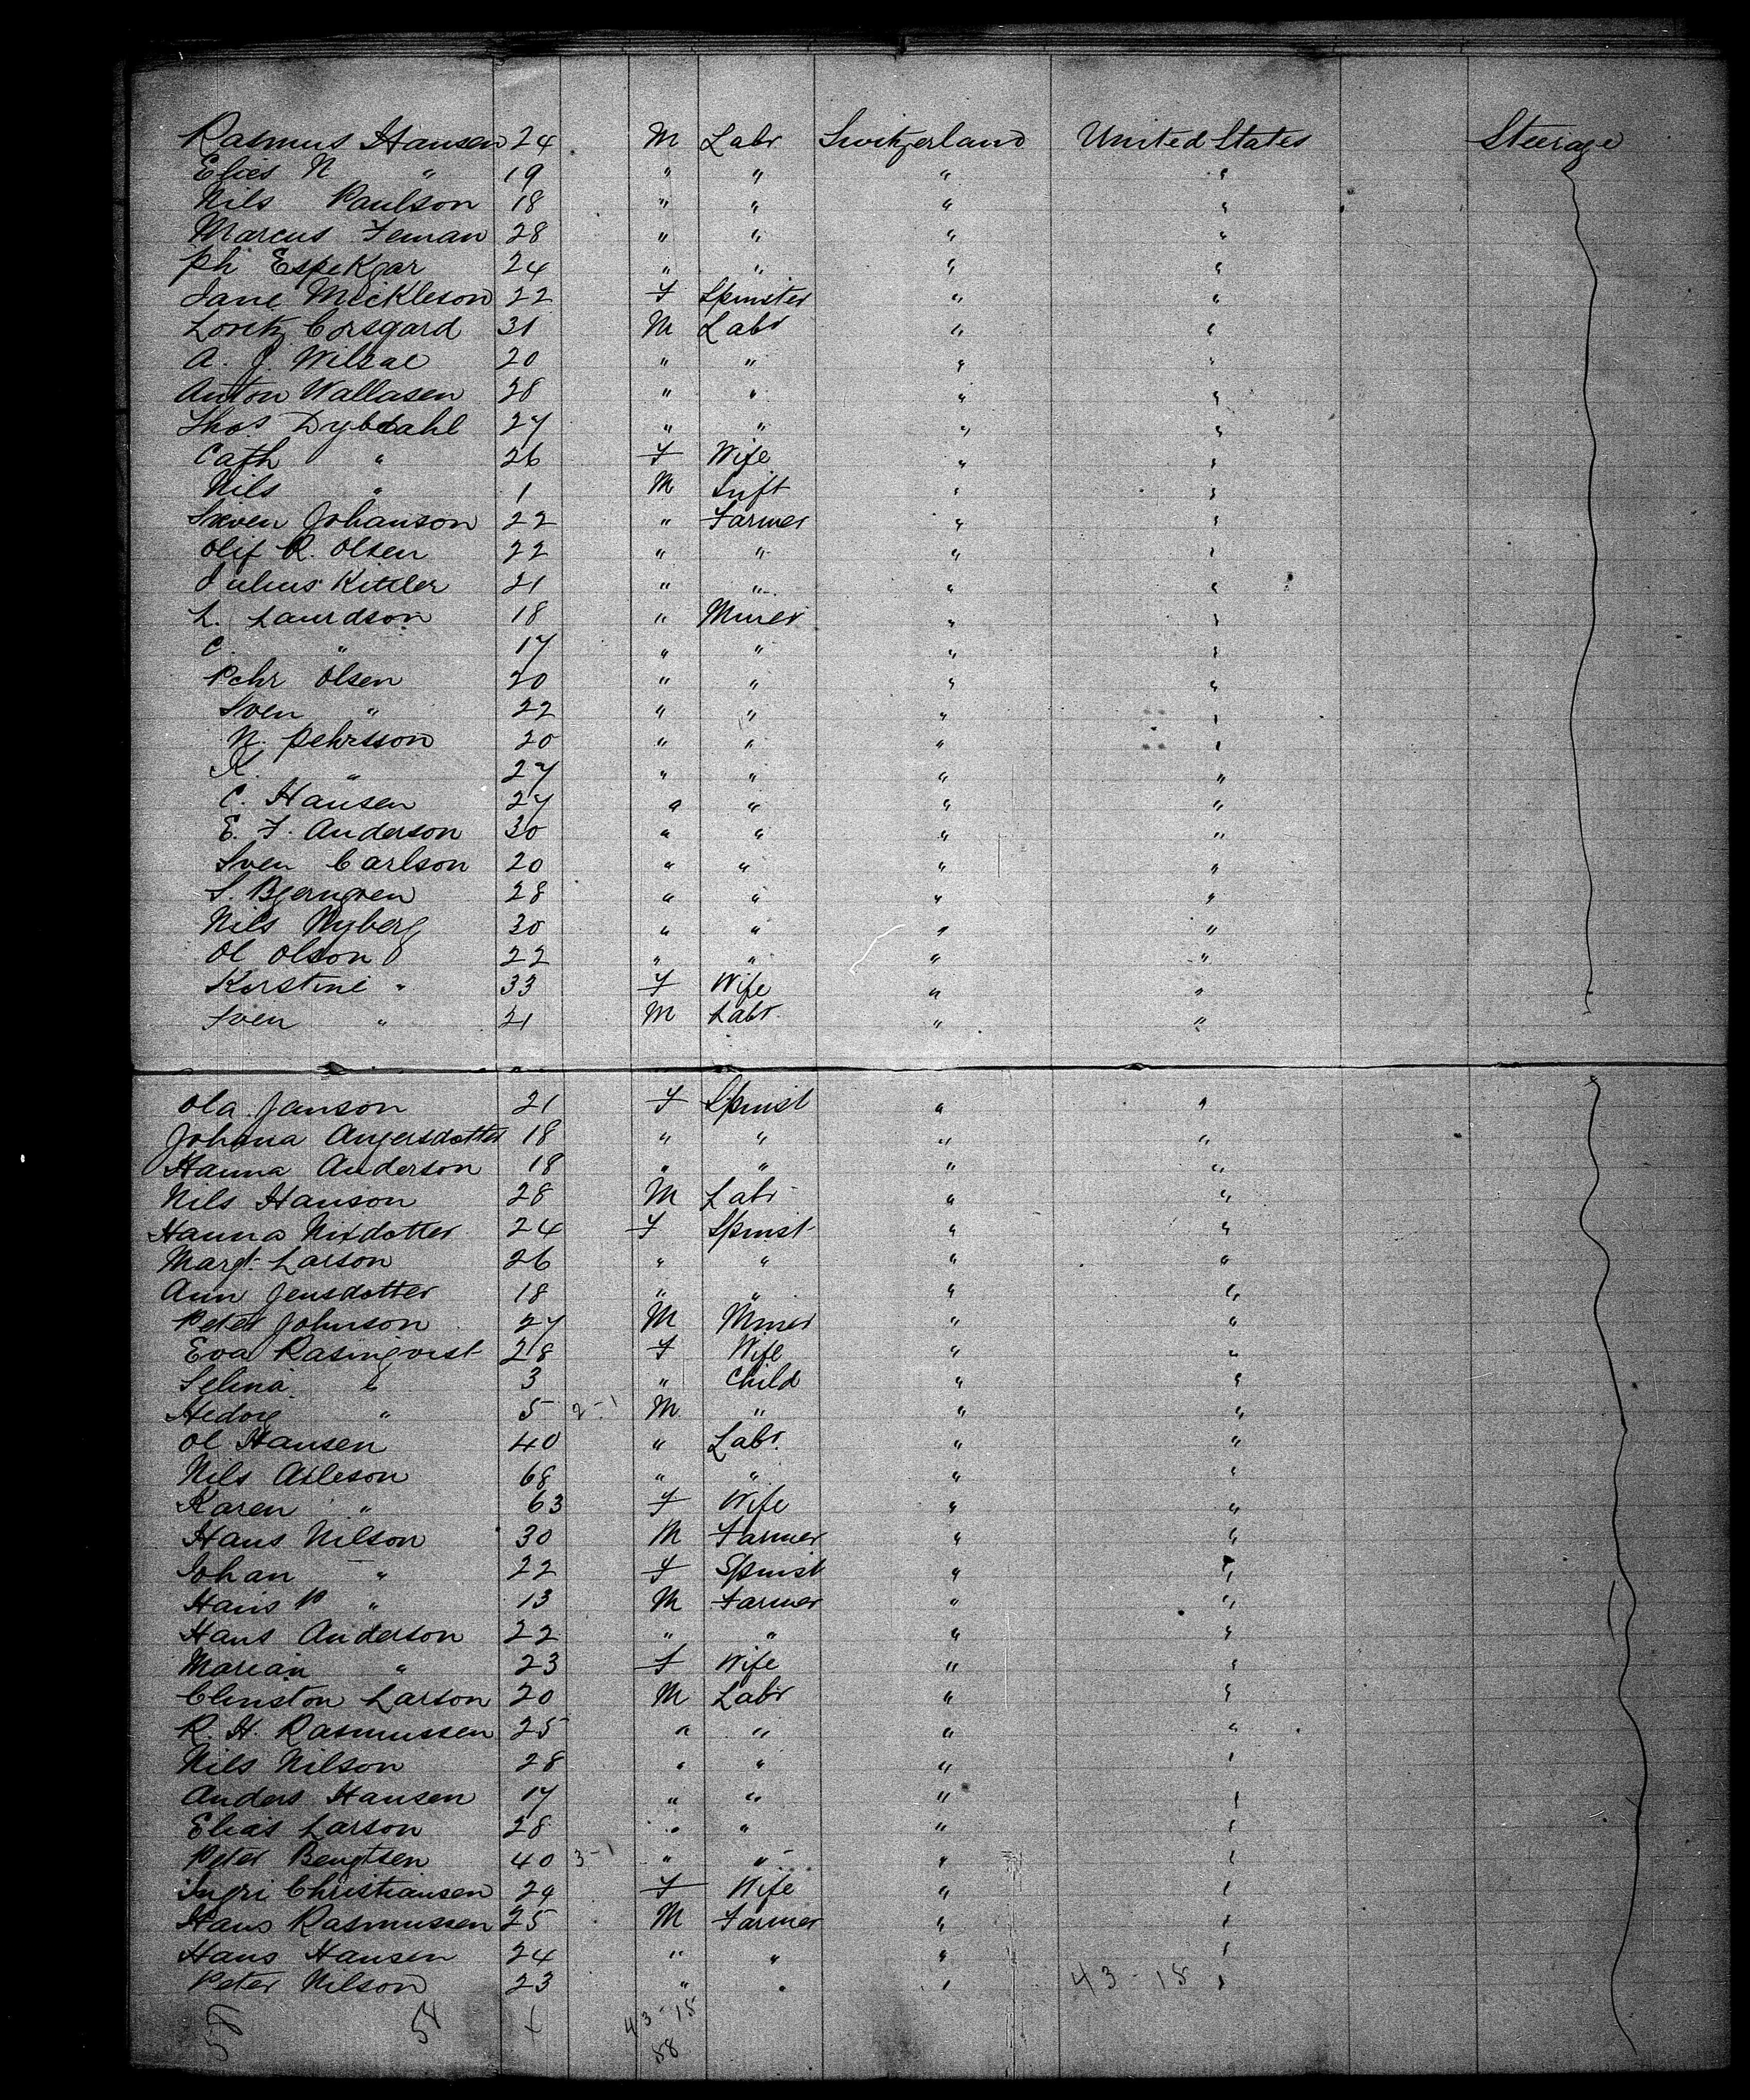 Rasmus Hansen 24 M Labr Switzerland United States Steerage
Elies N " 19 " " " "
Nils Paulson 18 " " " "
Marcus Feman 28 " " " "
Ph Espekjar 24 " " " "
Jane Mickleson 22 F Spinster " "
Loritz Corsgard 31 M Labr " "
A. J. 20 " " " "
Anton Wallasen 28 " " " "
Thos Dybdahl 27 " " " "
Cath " 26 F Wife " "
Nils " 1 M Inft " "
Swen Johanson 22 " Farmer " "
Olif R. Olsen 22 " " " "
Julius Kittler 21 " " " "
L. Laurdson 18 " Miner " "
C. " 17 " " " "
Pehr Olsen 20 " " " "
Sven " 22 " " " "
N. Pehrsson 20 " " " "
K. " 27 " " " "
C. Hansen 27 " " " "
E. F. Anderson 30 " " " "
Sven Carlson 20 " " " "
S. Bjerngren 28 " " " "
Nils Nyberg 30 " " " "
Ol Olson 22 " " " "
Kerstine " 33 F Wife " "
Sven " 21 M Labr " "
Ola Janson 21 F Spinst " "
Johana Angersdotter 18 " " " "
Hanna Anderson 18 " " " "
Nils Hanson 28 M Labr " "
Hanna Nixdotter 24 F Spinst " "
Margt Larson 26 " " " "
Ann Jensdotter 18 " " " "
Peter Johnson 27 M Miner " "
Eva Rasmqvist 28 F Wife " "
Selina " 3 " Child " "
Hedvig " 5 2-1 M " " "
Ol Hansen 40 " Labr. " "
Nils Alleson 68 " " " "
Karen " 63 F Wife " "
Hans Nilson 30 M Farmer " "
Johan " 22 F Spinst " "
Hans P " 13 M Farmer " "
Hans Anderson 22 " " " "
Marian " 23 F Wife " "
Clinston Larson 20 M Labr " "
R. H. Rasmussen 25 " " " "
Nils Nilson 28 " " " "
Anders Hansen 17 " " " "
Elias Larson 28 " " " "
Peter Bengtsen 40 3-1 " " " "
Ingri Christiansen 29 F Wife " "
Hans Rasmussen 25 M Farmer " "
Hans Hansen 24 " " " "
Peter Nilson 23 " " " 43-18 "
58 58 43-15
58